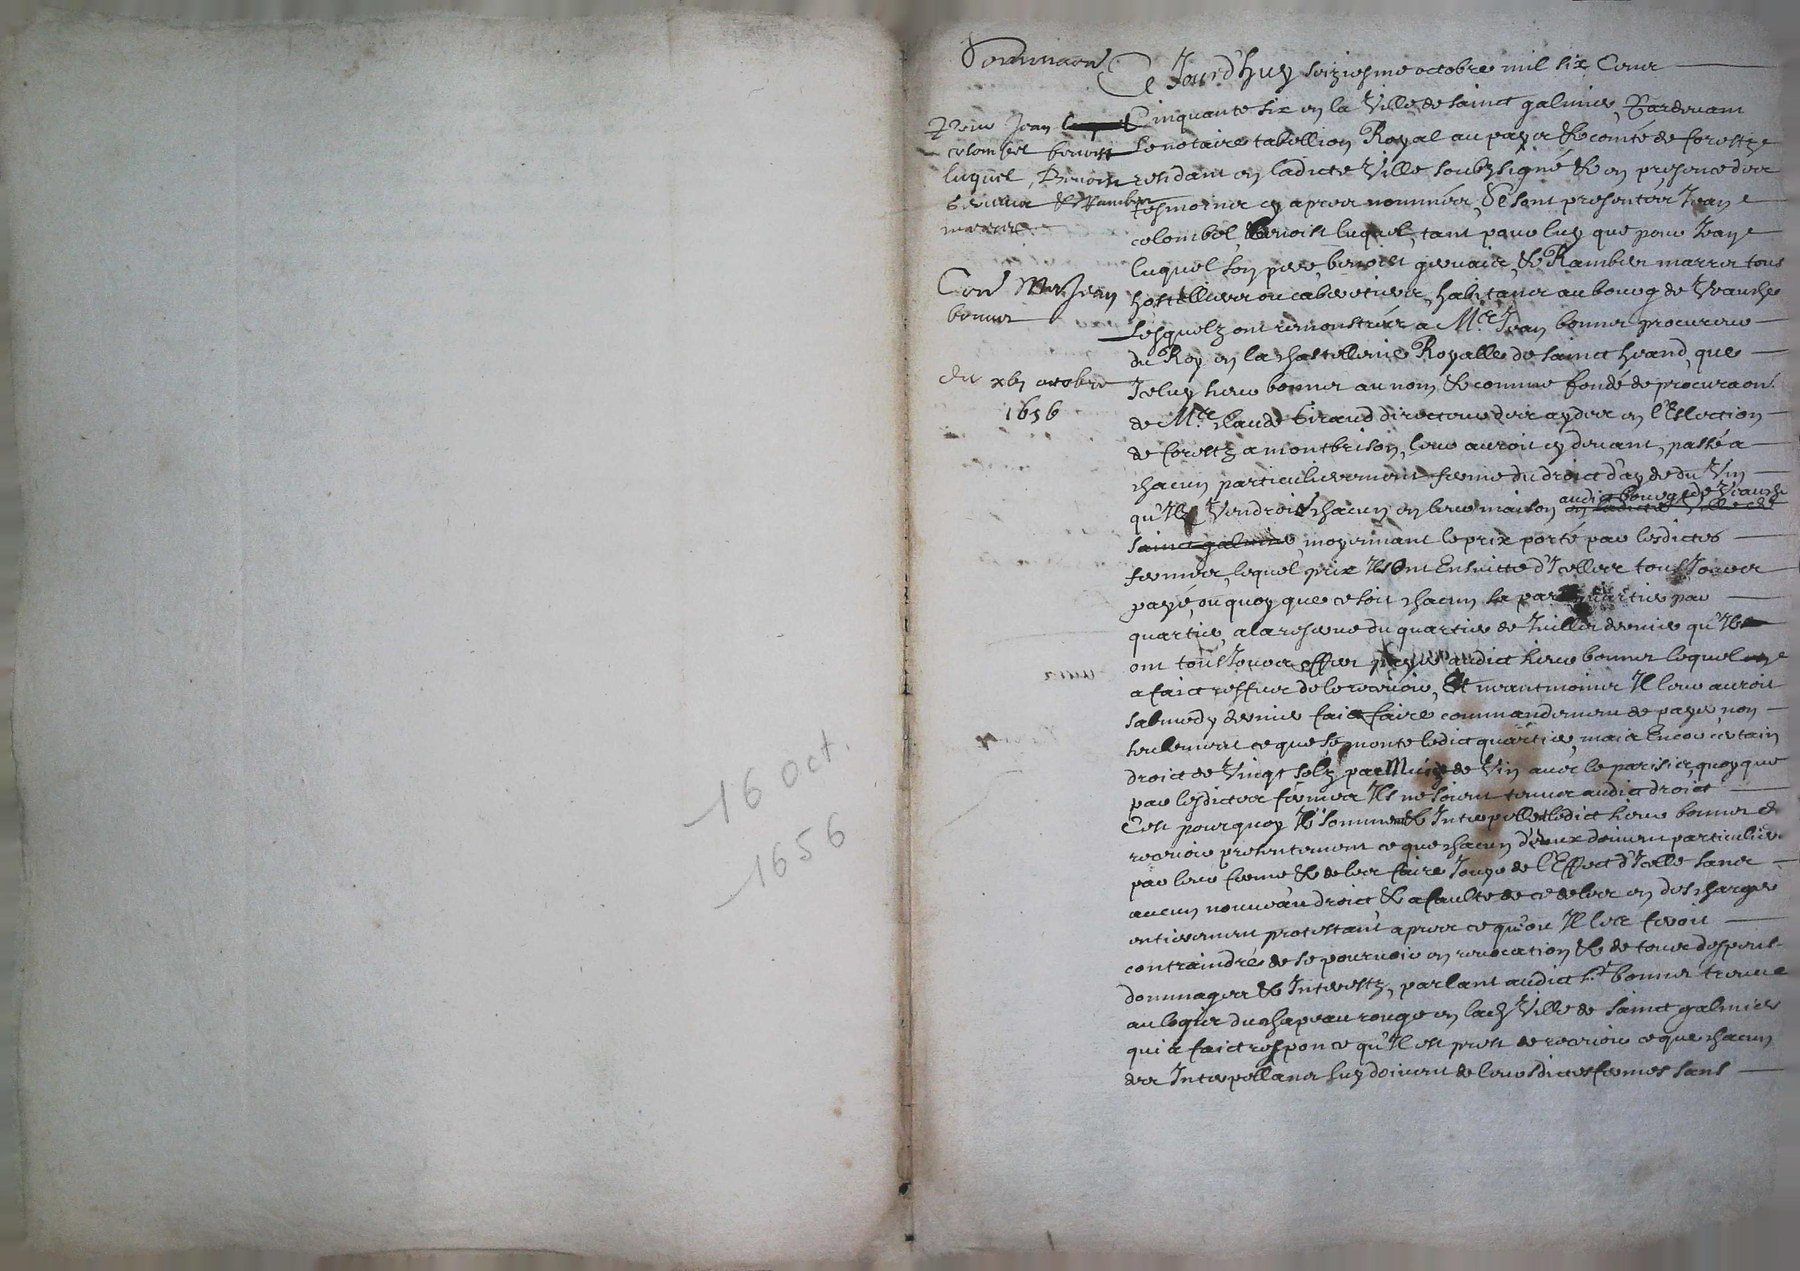 16 oct.
1656
Sommaon
Pour Jean
colombet benoist
luquet, Benoist
Gervais & Rambert
marret
Con.e Me Jean
bonnet
du xbj octobre
1656
Ce Jourd'huy seiziesme octobre mil six Cens
Cinquante six en la Ville de sainct galmier, Pardevant
le notaire tabellion Royal au pays & comté de forestz
residant en ladicte Ville soubzsigné & en presence des
tesmoins cy apres nommés, Se sont presentés Jean
colombet, Benoist luquet, tant pour luy que pour Jean
luquet son pere, benoist gervais, & Rambert marret tous
hostelliers ou cabaretiers, habitans au bourg de Veauche
Lesquelz ont remonstré a Me Jean bonnet procureur
du Roy en la chastellenie Royalle de sainct heand, que
Iceluy sieur bonnet au nom & comme fondé de procuraon
de Me claude Giraud directeur des aydes en l'Eslection
de forestz a montbrison, leur auroit cy devant, passé a
chacun particulierement ferme du droict d'ayde du Vin
qu'Ilz Vendroit chacun en leur maison audict bourg de Veauche
en ladicte Ville de
sainct galmier, moyennant le prix porté par lesdictes
fermes, lequel prix Ilz ont Ensuitte d'Icelles tousjours
payé, ou quoy que ce soit chacun sa part quartier par
quartier, a la reserve du quartier de Juillet dernier qu'Ilz
ont tousjours offert payer audict sieur bonnet lequel
a faict reffus de le recevoir, Et neantmoins Il leur auroit
sabmedy dernier faict faire commandement de payer, non
seulement ce que se monte ledict quartier, mais Encor certain
droict de Vingt solz par Muid de Vin avec le parisis, quoy que
par lesdictes fermes Ilz ne soient tenus audict droict
C'est pourquoy Ilz somment & Interpellent ledict sieur bonnet de
recevoir presentement ce que chacun d'eux doivent particulier
par leur ferme & de les faire Jouyr de l'Effect d'Icelle sans
aucun nouveau droict & a faulte de ce de les en descharger
entierement protestant apres ce qu'ou Il les feroit
contraindre de se pourvoir en revocation & de tous despens
dommages & Interestz, parlant audict sr bonnet treuvé
au logis du chapeau rouge en lad Ville de sainct galmier
qui a faict responce qu'Il est prest de recevoir ce que chacun
des Interpellans luy doivent de leursdictes fermes sans